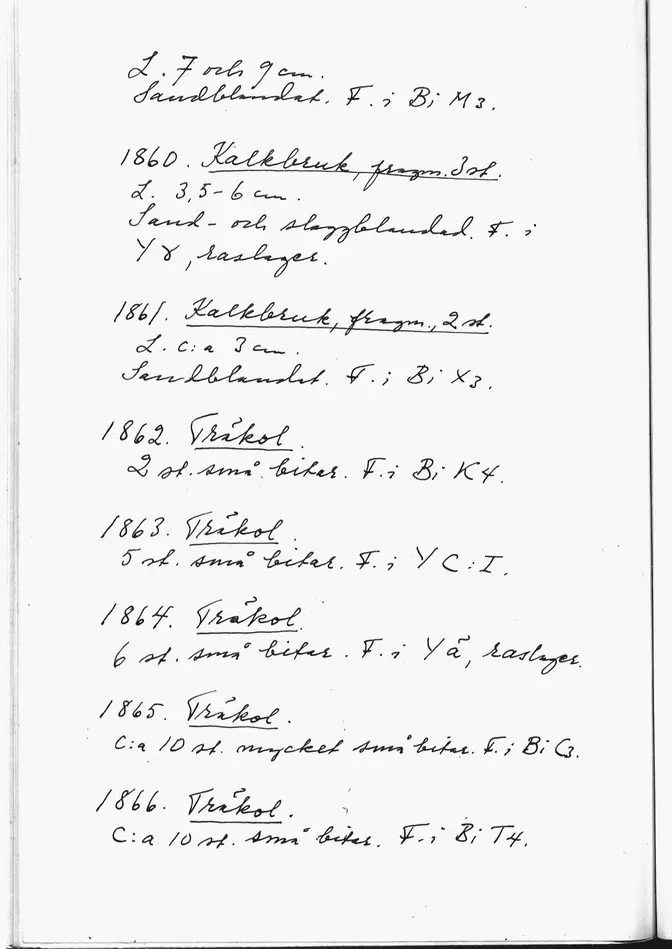 L. 7 och 9 cm.
Sandblandat. F. i Bi M3.
1860. Kalkbruk, fragm. 3 st.
L. 3,5-6 cm.
Sand- och slaggblandad. F. i
Y 8, raslager.
1861. Kalkbruk, fragm., 2 st.
L. c:a 3 cm.
Sandblandat. F. i Bi X3.
1862. Träkol.
2 st. små bitar. F. i Bi K4.
1863. Träkol.
5 st. små bitar. F. i Y C:I.
1864. Träkol.
6 st. små bitar. F. i Y ä, raslager.
1865. Träkol.
C:a 10 st. mycket små bitar. F. i Bi C3.
1866. Träkol.
C:a 10 st. små bitar. F. i Bi T4.